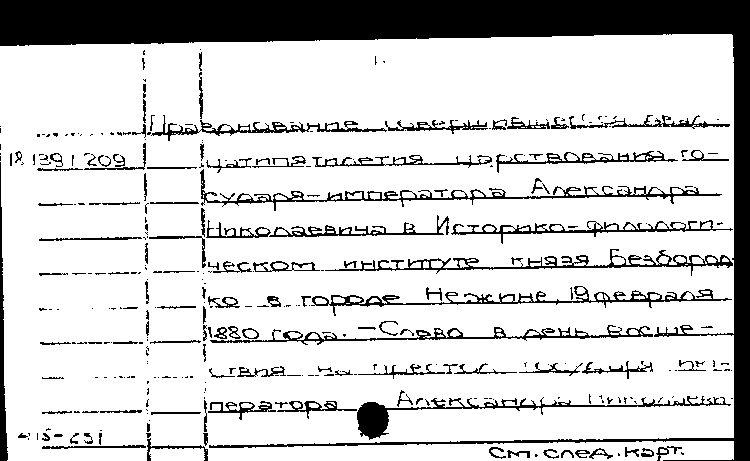 Празднование совершившегося двад-
18 139/209 цатипятилетия царствования го-
сударя-императора Александра
Николаевича в Историко-филологи-
ческом институте князя Безбород-
ко в городе Нежине, 19 февраля
1880 года. - Слово в день восше-
ствия на престол государя им-
ператора Александра Николаеви-
См. след. карт.